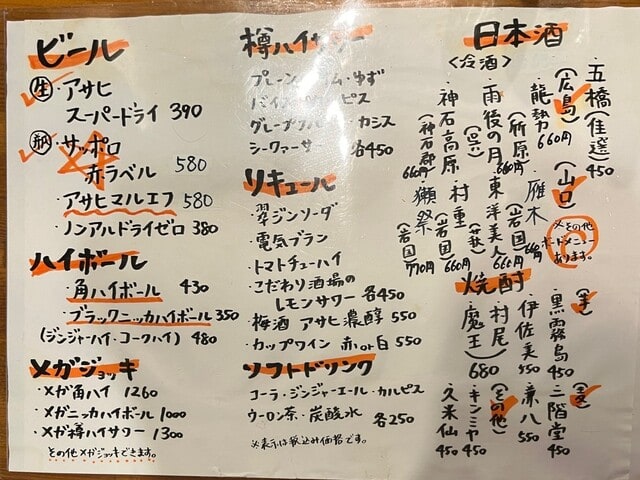 ビール
生 アサヒ
スーパードライ 390
瓶 サッポロ
赤ラベル 580
アサヒマルエフ 580
・ノンアルドライゼロ 380
ハイボール
・角ハイボール 430
・ブラックニッカハイボール 350
(ジンジャーハイ・コークハイ) 480
メガジョッキ
・メガ角ハイ 1260
・メガニッカハイボール 1000
・メガ樽ハイサワー 1300
その他メガジョッキできます。
樽ハイサワー
プレーン ・ゆず
ピス
グレープフル ・カシス
シークワーサ 各450
リキュール
・翠ジンソーダ
・電気ブラン
・トマトチューハイ
・こだわり酒場の
レモンサワー 各450
・梅酒 アサヒ濃醇 550
・カップワイン 赤or白 550
ソフトドリンク
コーラ・ジンジャーエール・カルピス
ウーロン茶・炭酸水 各250
※表示は税込み価格です。
日本酒
<冷酒>
五橋(佳撰) 450
(広島)
・龍勢(竹原) 660円
・雨後の月(呉) 660円
・神石高原(神石郡) 660円
(山口)
・雁木(岩国)
・東洋美人(萩) 660円
・村重(岩国) 660円
・獺祭(岩国) 770円
※その他
ボードメニュー
あります。
焼酎
(芋)
・黒霧島 450
・伊佐美 550
・村尾
・魔王 680
(麦)
・二階堂 450
・兼八 550
(その他)
・キンミヤ 450
・久米仙 450